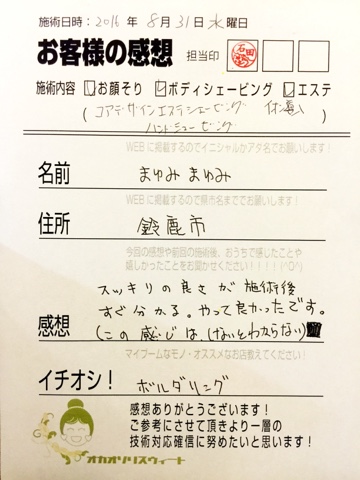 施術日時：2016年8月31日水曜日
お客様の感想 担当印 石田
施術内容 お顔そり ボディシェービング エステ
(コアデザインエステシェービング
ハンドシェービング
WEBに掲載するのでイニシャルかアダ名でお願いします！
名前 まゆみ まゆみ
WEBに掲載するので県市名まででお願いします！
住所 鈴鹿市
今回の感想や前回の施術後、おうちで感じたことや
嬉しかったことをお聞かせください！！！！(^O^)
スッキリの良さが施術後
すぐ分かる。やって良かったです。
感想 (この感じは、(ないとわからない)
マイブームなモノ・オススメなお店教えてください！
イチオシ！ ボルダリング
感想ありがとうございます！
ご参考にさせて頂きより一層の
技術対応確信に努めたいと思います！
オカオソリスウィート